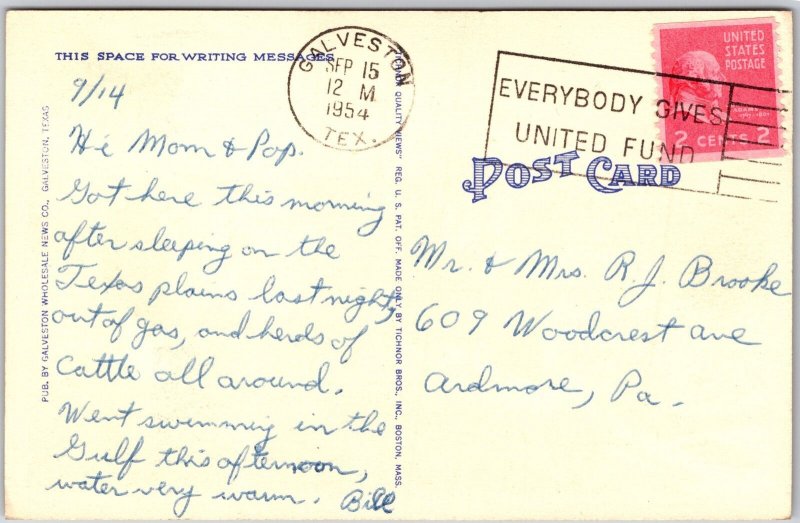 THIS SPACE FOR WRITING MESSAGES
GALVESTON
SEP 15
12 M
1954
TEX.
EVERYBODY GIVES
UNITED FUND
UNITED
STATES
POSTAGE
ADAMS
2 CENTS 2
POST CARD
9/14
Hi Mom & Pop.
Got here this morning
after sleeping on the
Texas plains last night,
out of gas, and herds of
Cattle all around.
Went swimming in the
Gulf this afternoon,
water very warm. Bill
Mr. & Mrs. R. J. Brooke
609 Woodcrest ave
Ardmore, Pa.
PUB. BY GALVESTON WHOLESALE NEWS CO., GALVESTON, TEXAS
QUALITY VIEWS" REG. U. S. PAT. OFF. MADE ONLY BY TICHNOR BROS., INC., BOSTON, MASS.